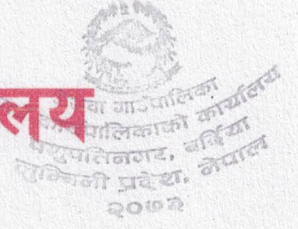 लय
गाउँपालिका
गाउँपालिकाको कार्यालय
पशुपतिनगर, बर्दिया
लुम्बिनी प्रदेश, नेपाल
२०७३